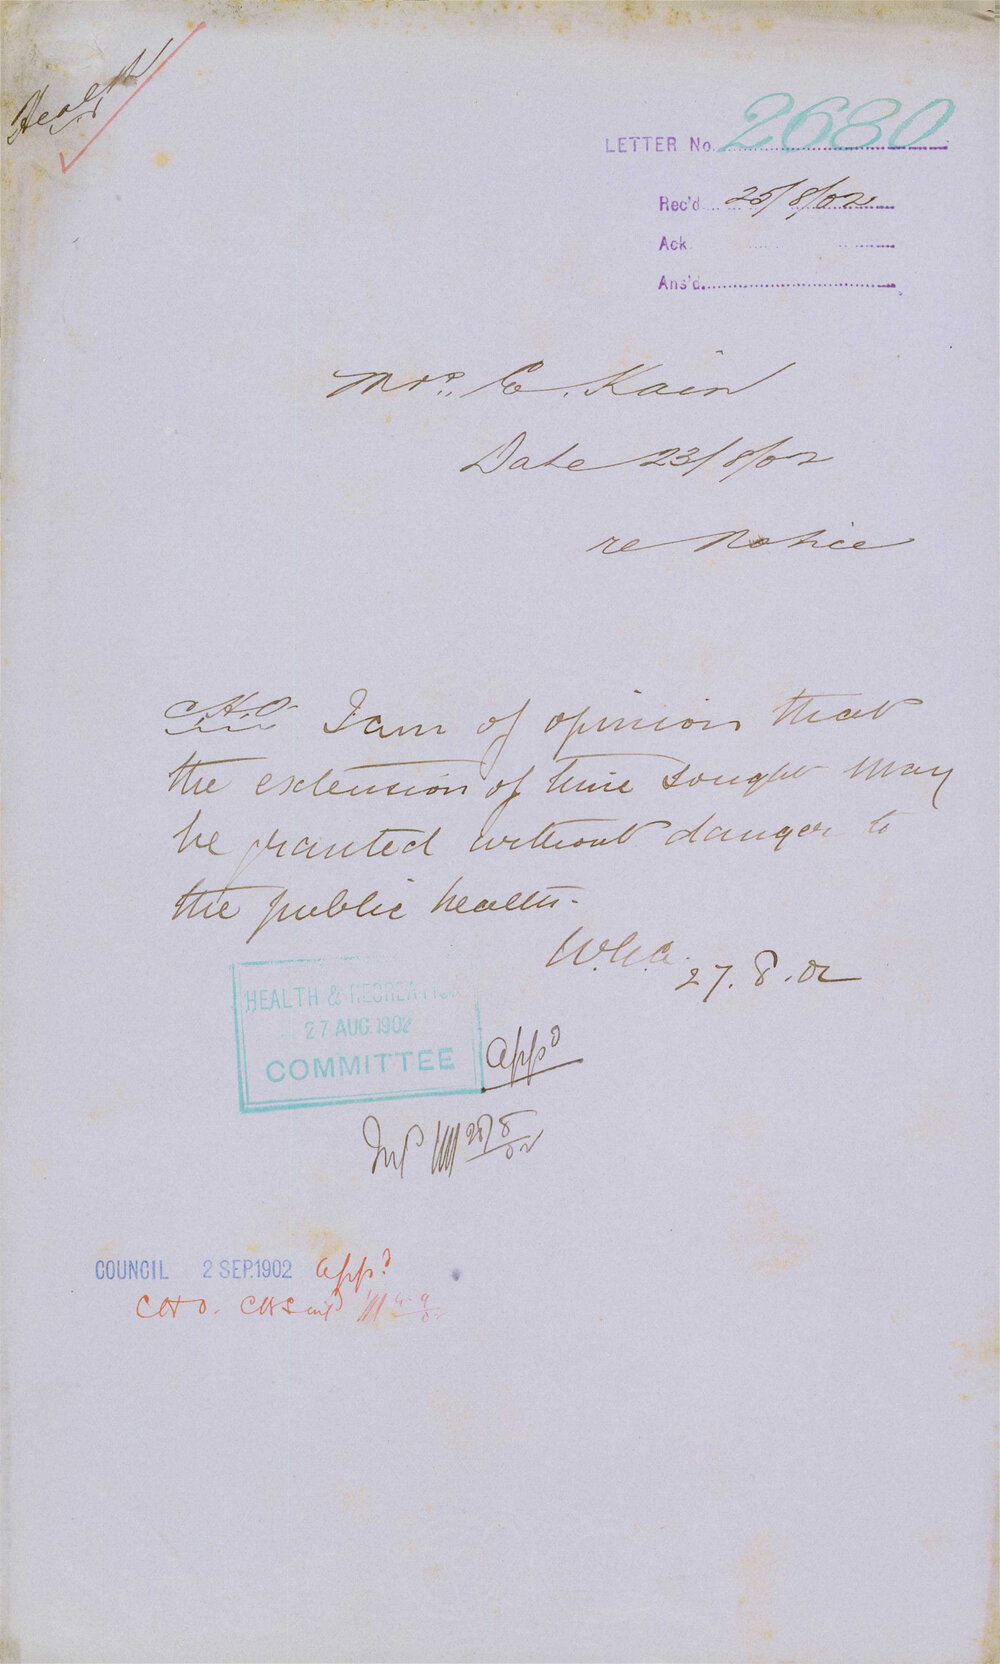 Health
LETTER No. 2680
Rec'd 25/8/02
Ack.
Ans'd.
Mrs. E. Kain
Date 23/8/02
re Notice
C.H.O. I am of opinion that
the extension of time sought may
be granted without danger to
the public health.
27.8.02
HEALTH & RECREATION
27 AUG 1902
COMMITTEE
Appd
COUNCIL 2 SEP. 1902 Appd.
CHO.